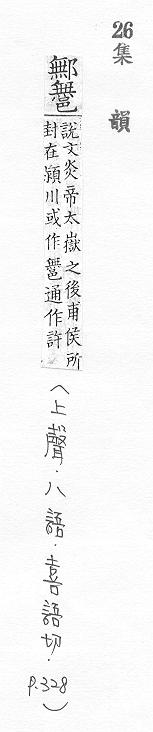 26
集韻
鄦𨛱
說文炎帝太嶽之後甫侯所
封在潁川或作𨛱通作許
(上聲.八語.喜語切.
p.328)